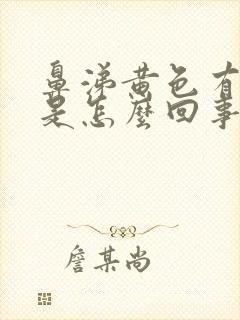 鼻涕黄色有
是怎麽回事
詹某尚